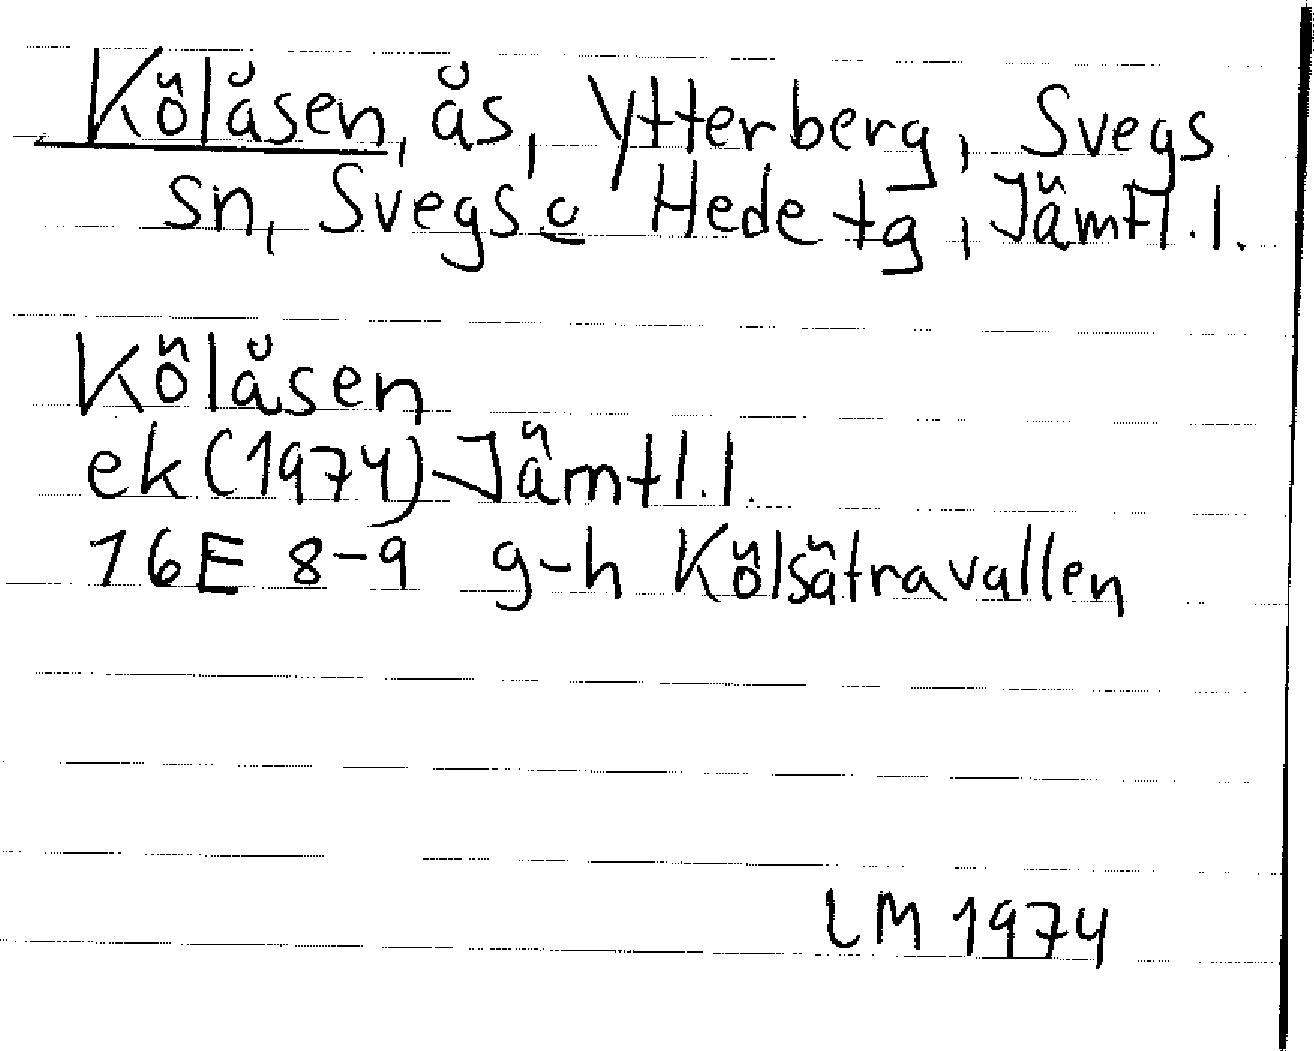 Kölåsen, ås, Ytterberg, Svegs
sn, Svegs o Hede tg, Jämtl.l.
Kölåsen
ek (1974) Jämtl.l.
16E 8-9 g-h Kölsätravallen
LM 1974